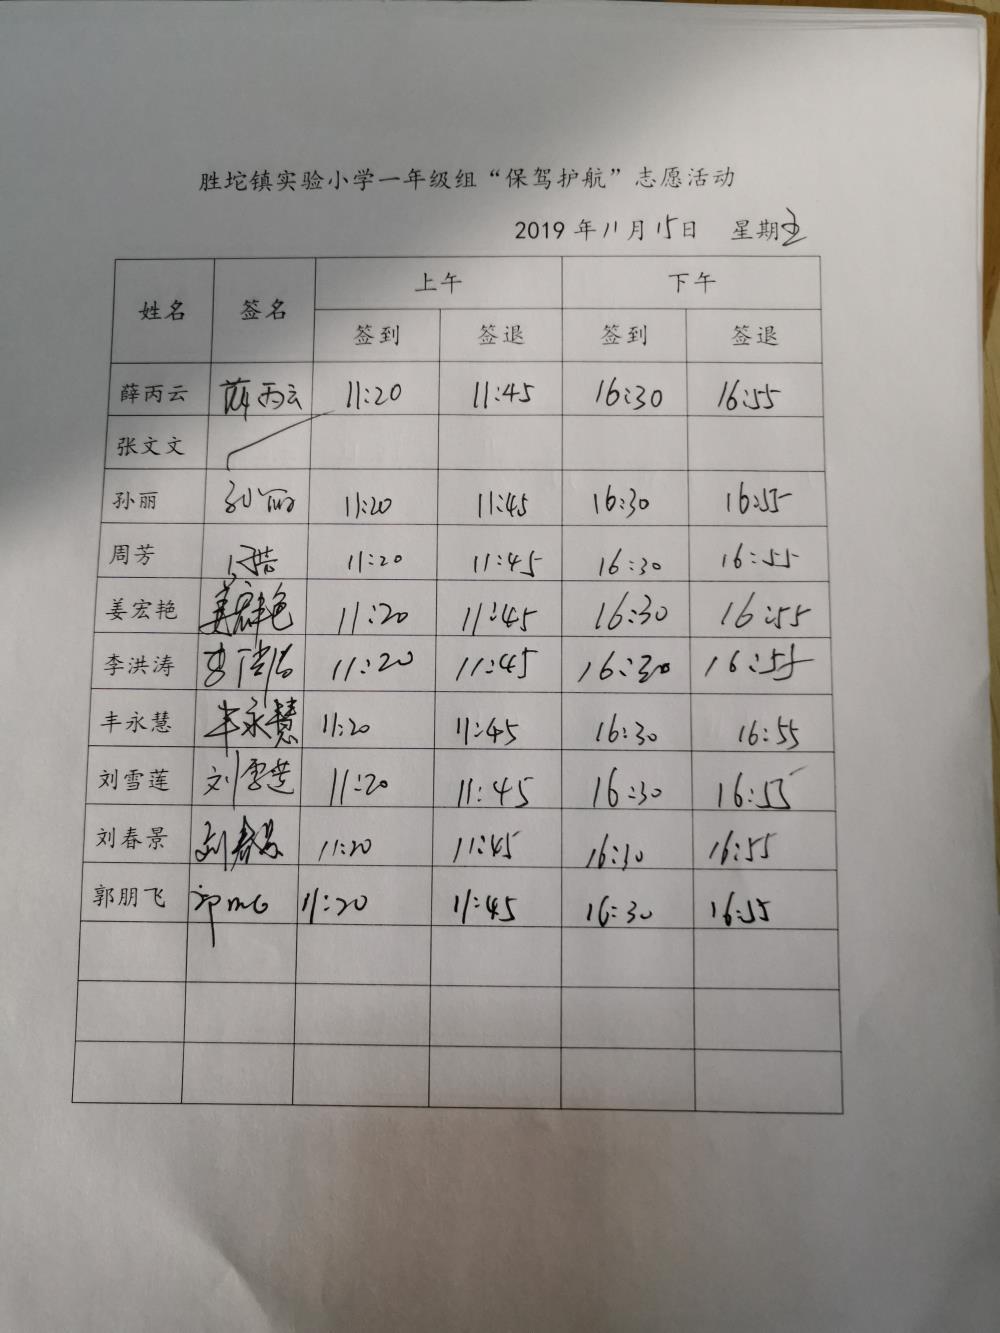 胜坨镇实验小学一年级组“保驾护航”志愿活动
2019年11月15日 星期五
姓名 签名 上午 下午
签到 签退 签到 签退
薛丙云 薛丙云 11:20 11:45 16:30 16:55
张文文
孙丽 孙丽 11:20 11:45 16:30 16:55
周芳 11:20 11:45 16:30 16:55
姜宏艳 姜宏艳 11:20 11:45 16:30 16:55
李洪涛 李洪涛 11:20 11:45 16:30 16:55
丰永慧 丰永慧 11:20 11:45 16:30 16:55
刘雪莲 刘雪莲 11:20 11:45 16:30 16:55
刘春景 刘春景 11:20 11:45 16:30 16:55
郭朋飞 11:20 11:45 16:30 16:55